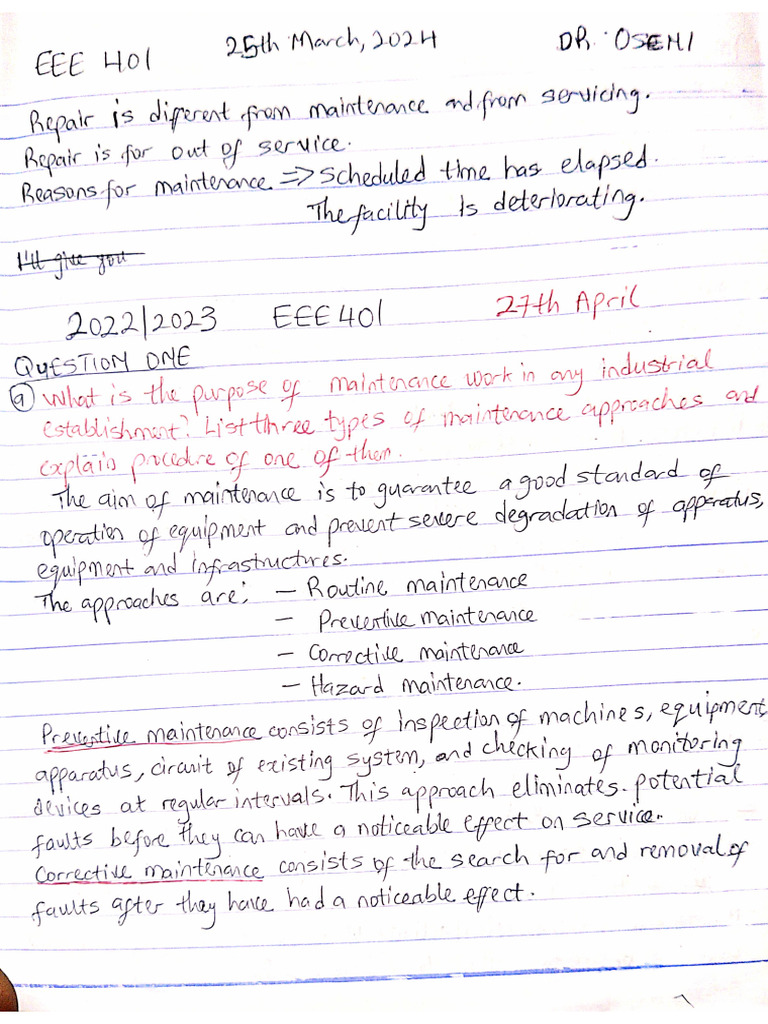 EEE 401 25th March, 2024 DR. OSEMI
Repair is different from maintenance and from servicing.
Repair is for out of service.
Reasons for maintenance => scheduled time has elapsed.
The facility is deteriorating.
I'll give you
2022/2023 EEE 401 27th April
QUESTION ONE
(a) What is the purpose of maintenance work in any industrial
establishment? List three types of maintenance approaches and
explain procedure of one of them.
The aim of maintenance is to guarantee a good standard of
operation of equipment and prevent severe degradation of apparatus,
equipment and infrastructures.
The approaches are: - Routine maintenance
- Preventive maintenance
- Corrective maintenance
- Hazard maintenance.
Preventive maintenance consists of inspection of machines, equipment
apparatus, circuit of existing system, and checking of monitoring
devices at regular intervals. This approach eliminates potential
faults before they can have a noticeable effect on service.
Corrective maintenance consists of the search for and removal of
faults after they have had a noticeable effect.